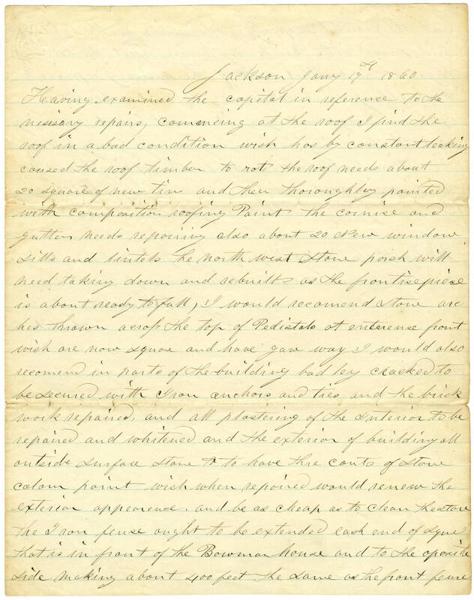 Jackson Jany 19th 1860
Having examined the capital in reference to the
nessary repairs, commencing at the roof I find the
roof in a bad condition wich has by constant leaking
caused the roof timber to rot the roof needs about
20 square of new tin and then thoroughly painted
with composition roofing Paint the cornise and
gutters needs repairing also about 20 New window
Sills and lintels the north west Stone porch will
need taking down and rebuilt as the frontispiese
is about ready to fall, I would recomend Stone ar
ches thrown across the top of Pedistals at enterense front
wish are now square and have gave way I would also
recomend in parts of the building bad ley cracked to
be secured with Iron anchors and ties, and the brick
work repaired, and all plastering of the interior to be
repaired and whitened and the exterior of building all
outside surface stone to have thre coats of Stone
calom paint wish when repaired would renew the
exterior appearence and be as cheap as to clean the stone
the Iron fense ought to be extended each end of Squr
that is in front of the Bowman House and to the oposite
side making about 400 feet the same as the front fense